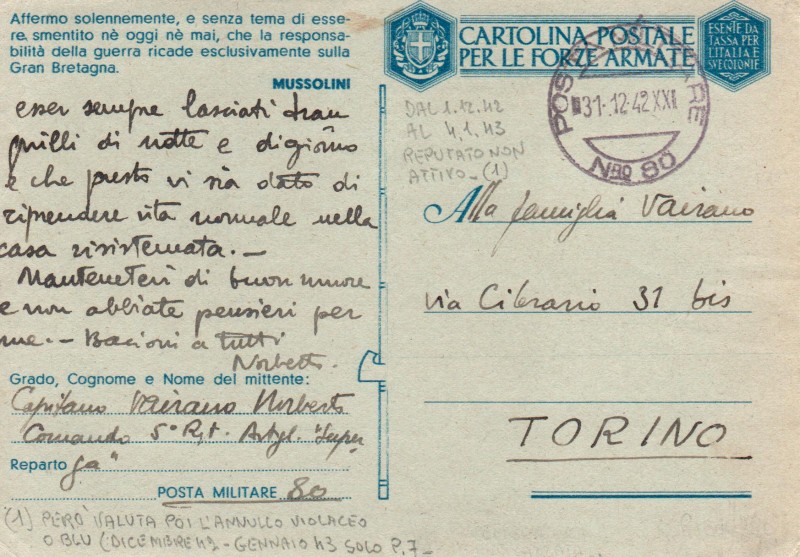 Affermo solennemente, e senza tema di esse-
re smentito nè oggi nè mai, che la responsa-
bilità della guerra ricade esclusivamente sulla
Gran Bretagna.
MUSSOLINI
esser sempre lasciati tran
quilli di notte e di giorno
e che presto vi sia dato di
riprendere vita normale nella
casa risistemata.-
Mantenetevi di buon umore
e non abbiate pensieri per
me.- Bacioni a tutti
Norberto.
Grado, Cognome e Nome del mittente:
Capitano Vairano Norberto
Comando 5° Rgt. Artgl. "Super
Reparto ga"
POSTA MILITARE 80
(1) PERÒ VALUTA POI L'ANNULLO VIOLACEO
O BLU (DICEMBRE 42 - GENNAIO 43 SOLO P.7-
CARTOLINA POSTALE
PER LE FORZE ARMATE
ESENTE DA
TASSA PER
L'ITALIA E
SVE COLONIE
POSTA MILITARE
31.12.42 XXI
NRO 80
DAL 1.12.42
AL 4.1.43
REPUTATO NON
ATTIVO-(1)
Alla famiglia Vairano
via Cibrario 31 bis
TORINO